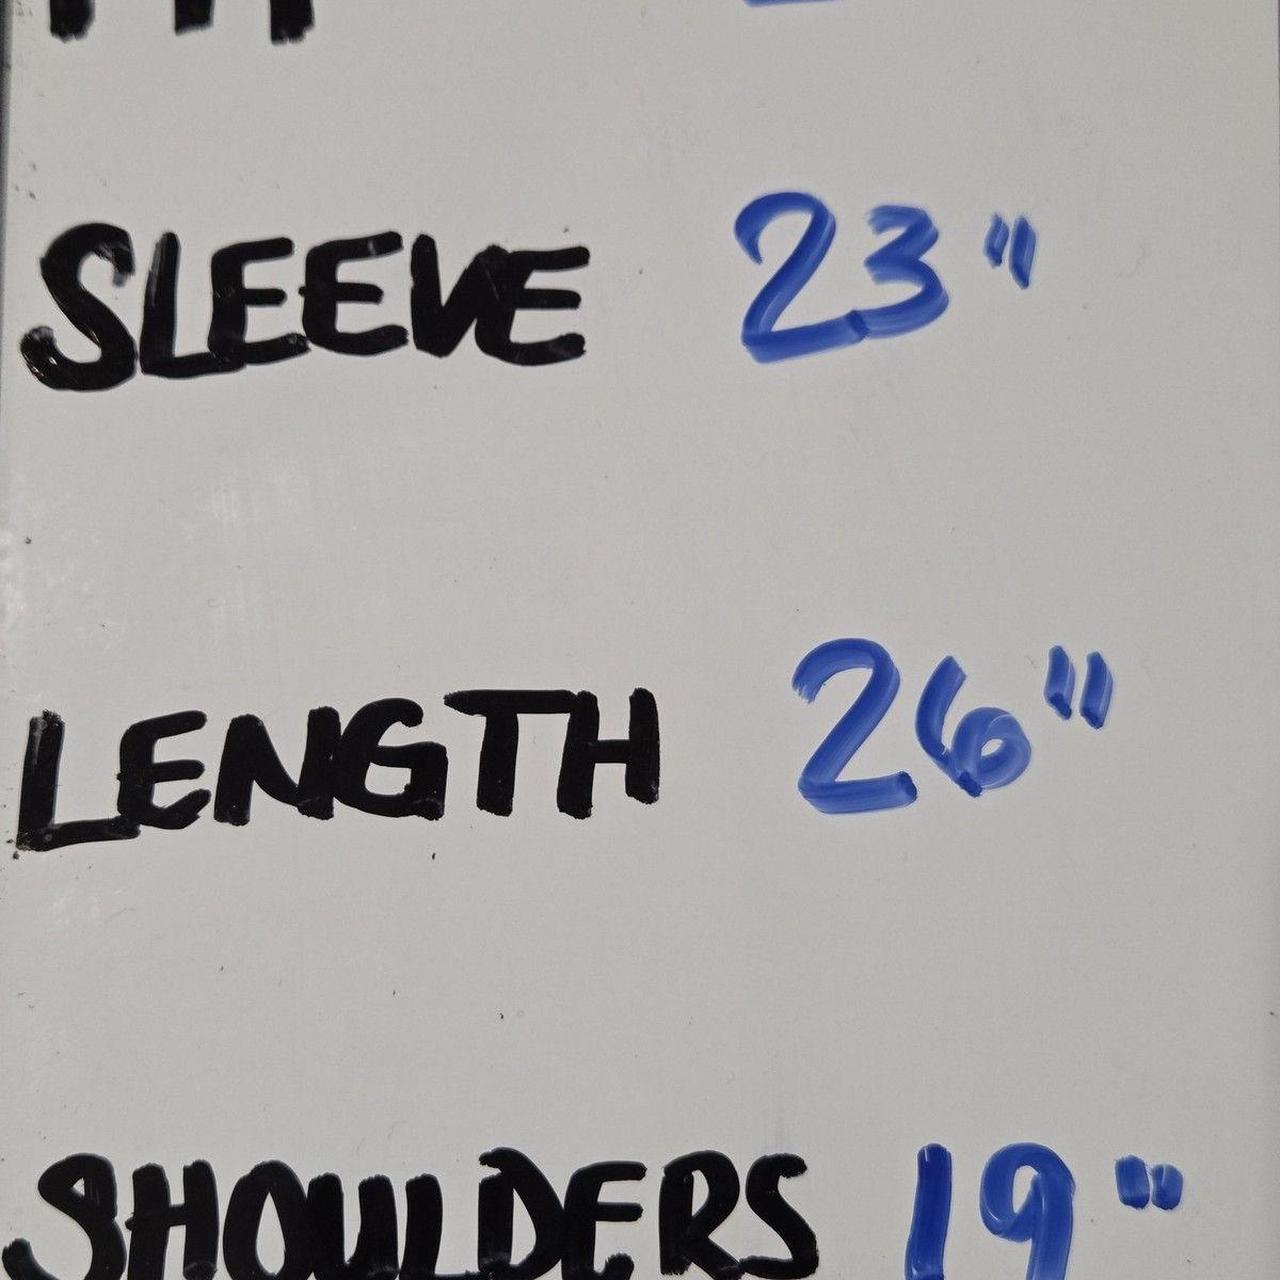 SLEEVE 23"
LENGTH 26"
SHOULDERS 19"